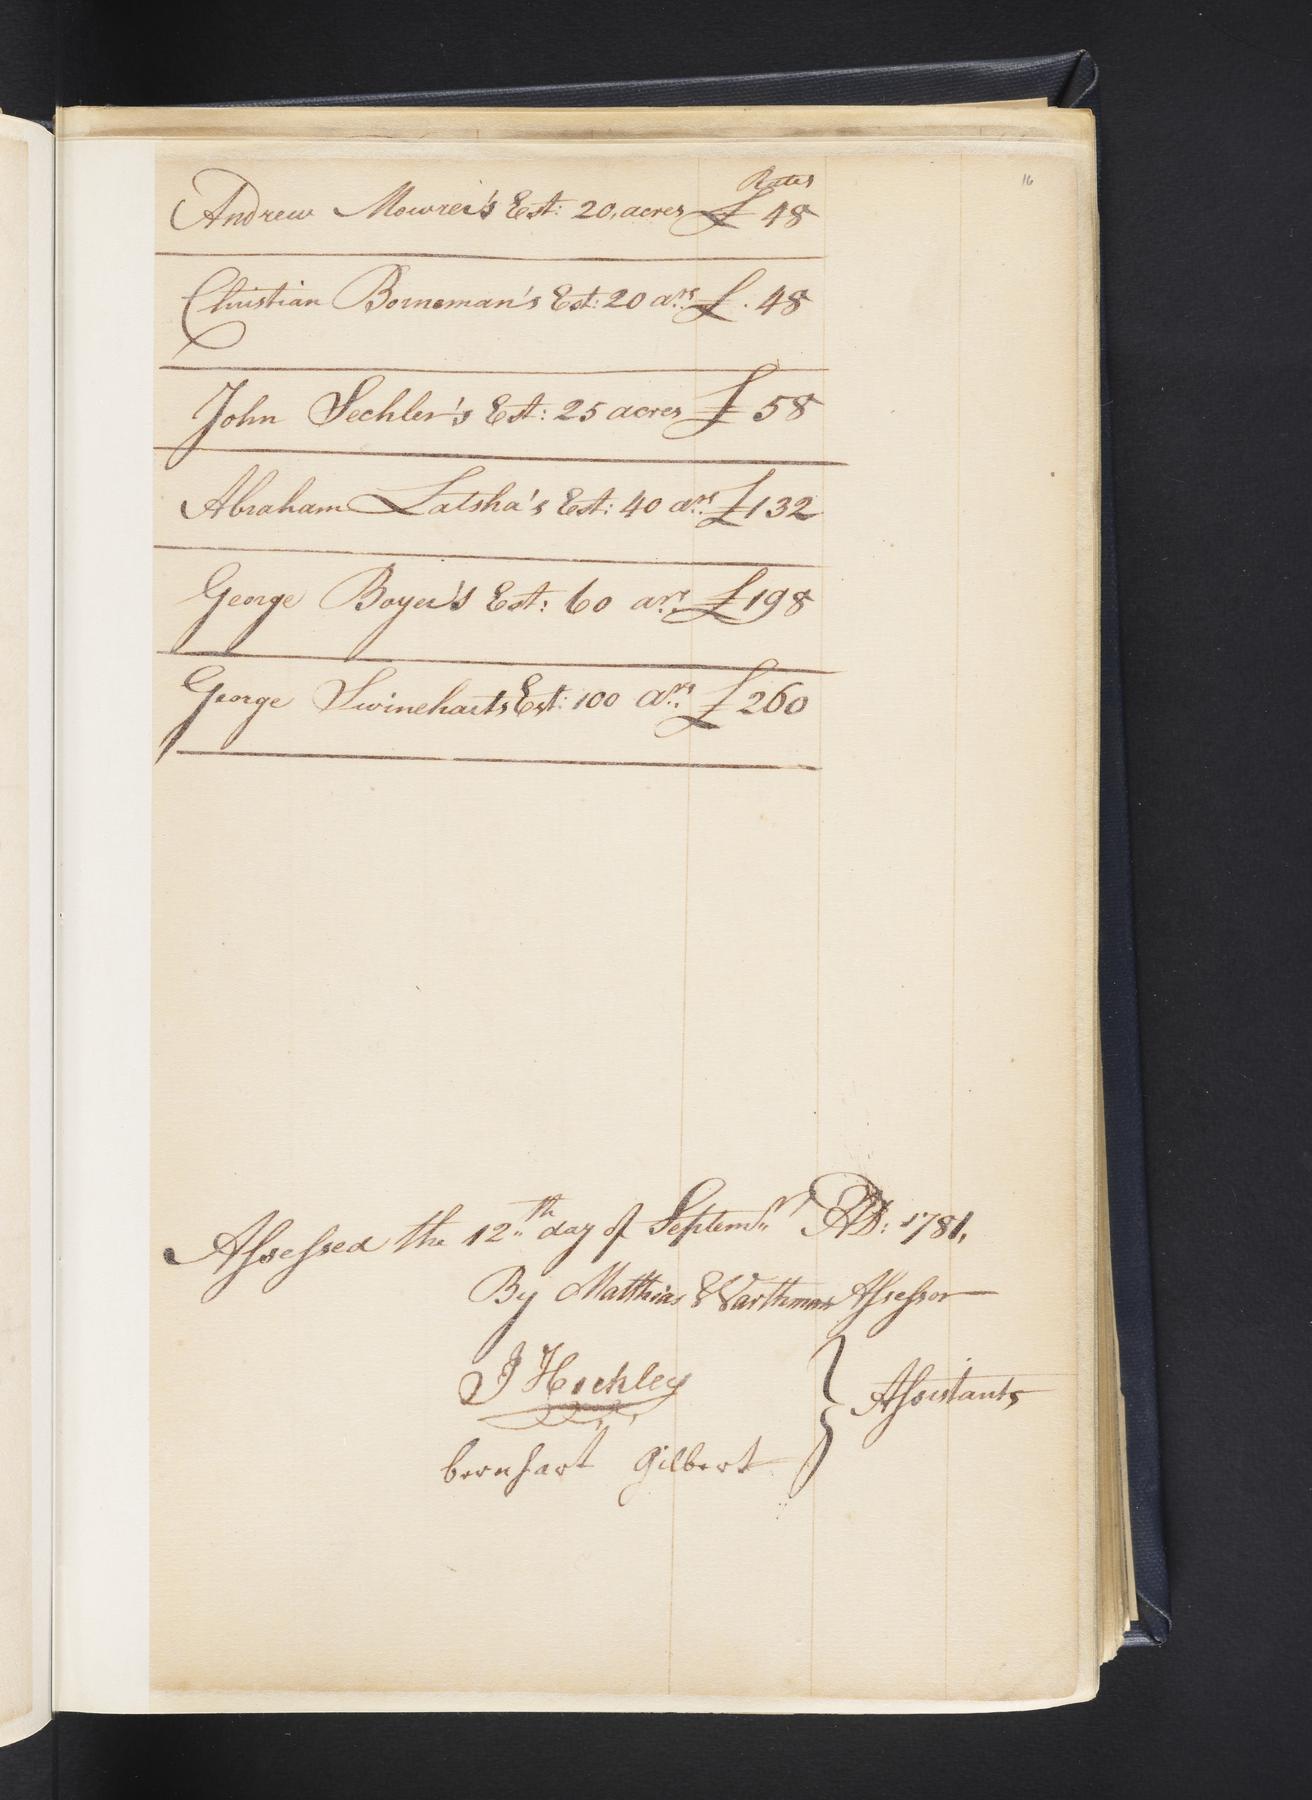 16
Rates
Andrew Mowrer's Est: 20, acres £ 48
Christian Borneman's Est: 20 a.rs £. 48
John Sechler's Est: 25 acres £ 58
Abraham Latsha's Est: 40 a.rs £132
George Boyer's Est: 60 a.rs £198
George Swineharts Est: 100 a.rs £260
Assessed the 12th day of Septemr AD: 1781,
By Matthias Warthman Assessor
J Hockley
Assistants
bernhart Gilbert